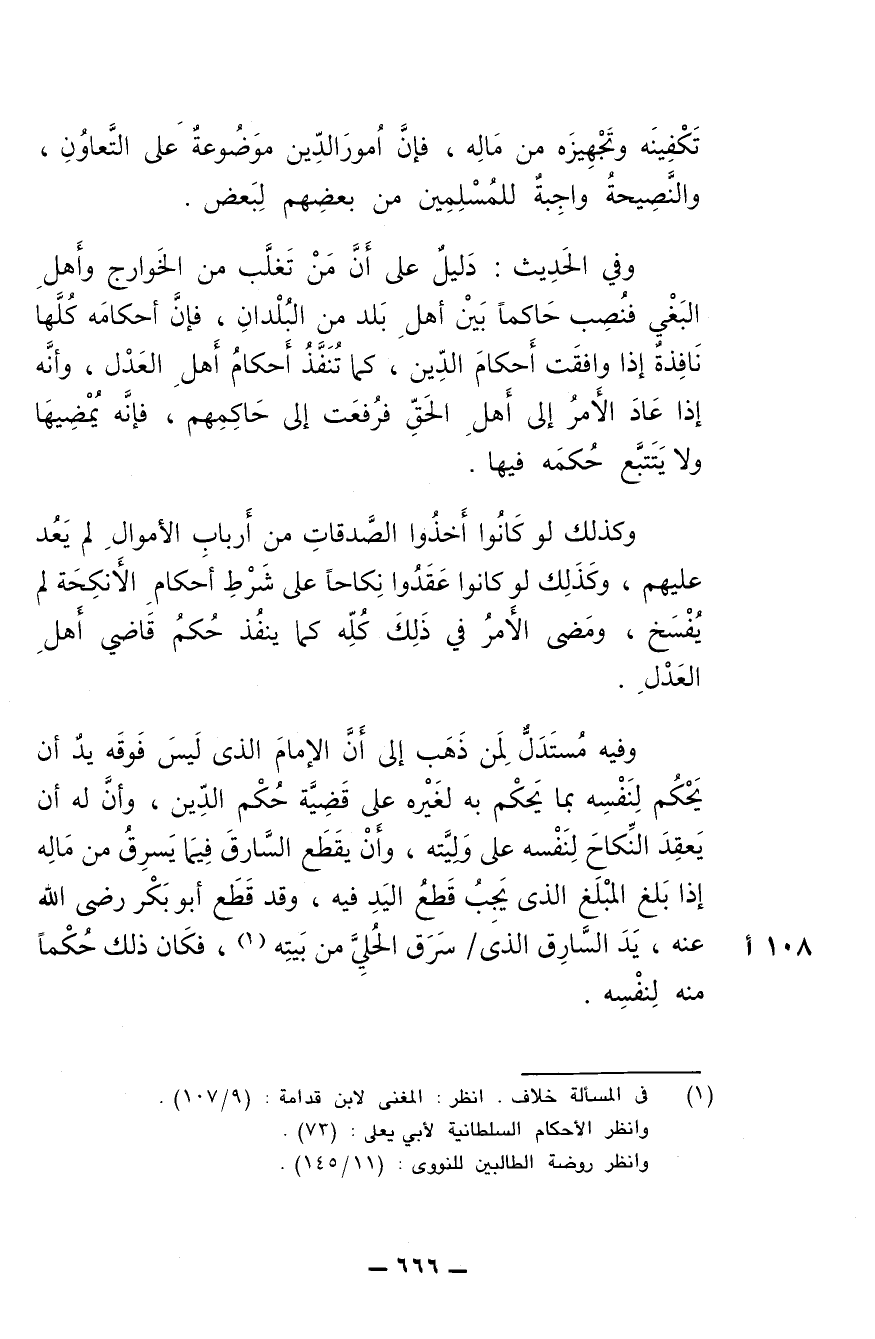 تَكْفِينَه وتَجْهِيزَه من مَالِه ، فإنَّ اُمورَالدِّين موَضُوعةٌ َعلى التَّعاوُنِ ،
والنَّصِيحةُ واجِبةٌ للمُسْلِمِين من بعضِهم لِبَعض .
وفي الحَدِيث : دَليلٌ على أَنَّ مَنْ تَغلَّب من الخَوارج وأَهلِ
البَغْيِ فنُصِب حَاكماً بَيْنْ أهلِ بَلد من البُلْدانِ ، فإنَّ أحكامَه كُلَّها
نَافِذةٌ إذا وافقَت أَحكامَ الدِّين ، كما تُنَفَّذُ أَحكامُ أَهلِ العَدْل ، وأنَّه
إذا عَادَ الأَمرُ إلى أَهلِ الحَقِّ فرُفعَت إلى حَاكِمِهم ، فإنَّه يُمْضِيهَا
ولا يَتَتبَّع حُكمَه فيها .
وكذلك لو كَانُوا أَخذُوا الصَّدقاتِ من أَربابِ الأموالِ لم يَعُد
عليهم ، وكَذَلِك لو كانوا عَقَدُوا نِكاحاً على شَرْطِ أحكامِ الأَنكِحَة لم
يُفْسَخ ، ومَضى الأَمرُ في ذَلِكَ كُلِّه كما ينفُذ حُكمُ قَاضي أَهلِ
العَدْلِ .
وفيه مُستَدَلٌّ لِمَن ذَهَب إلى أَنَّ الإمامَ الذى لَيسَ فَوقَه يدٌ أن
يَحْكُم لِنَفْسِه بما يَحكْم به لغَيْره على قَضِيَّة حُكْم الدِّين ، وأنَّ له أن
يَعقِدَ النِّكاحَ لِنَفْسه على وَلِيَّته ، وأَنْ يقَطَع السَّارقَ فِيمَا يَسرِقُ من مَالِه
إذا بَلغ المْبلَغ الذى يَجِبُ قَطعُ اليَدِ فيه ، وقد قَطَع أبو بَكْر رضى الله
عنه ، يَدَ السَّارِق الذى/ سَرَق الحُليَّ من بَيتِه (١) ، فكَان ذلك حُكْماً ١٠٨ أ
منه لِنفْسِه .
(١) فى المسألة خلاف . انظر : المغنى لابن قدامة : (١٠٧/٩) .
وانظر الأحكام السلطانية لأبي يعلى : (٧٣) .
وانظر روضة الطالبين للنووى : (١٤٥/١١) .
– ٦٦٦ –